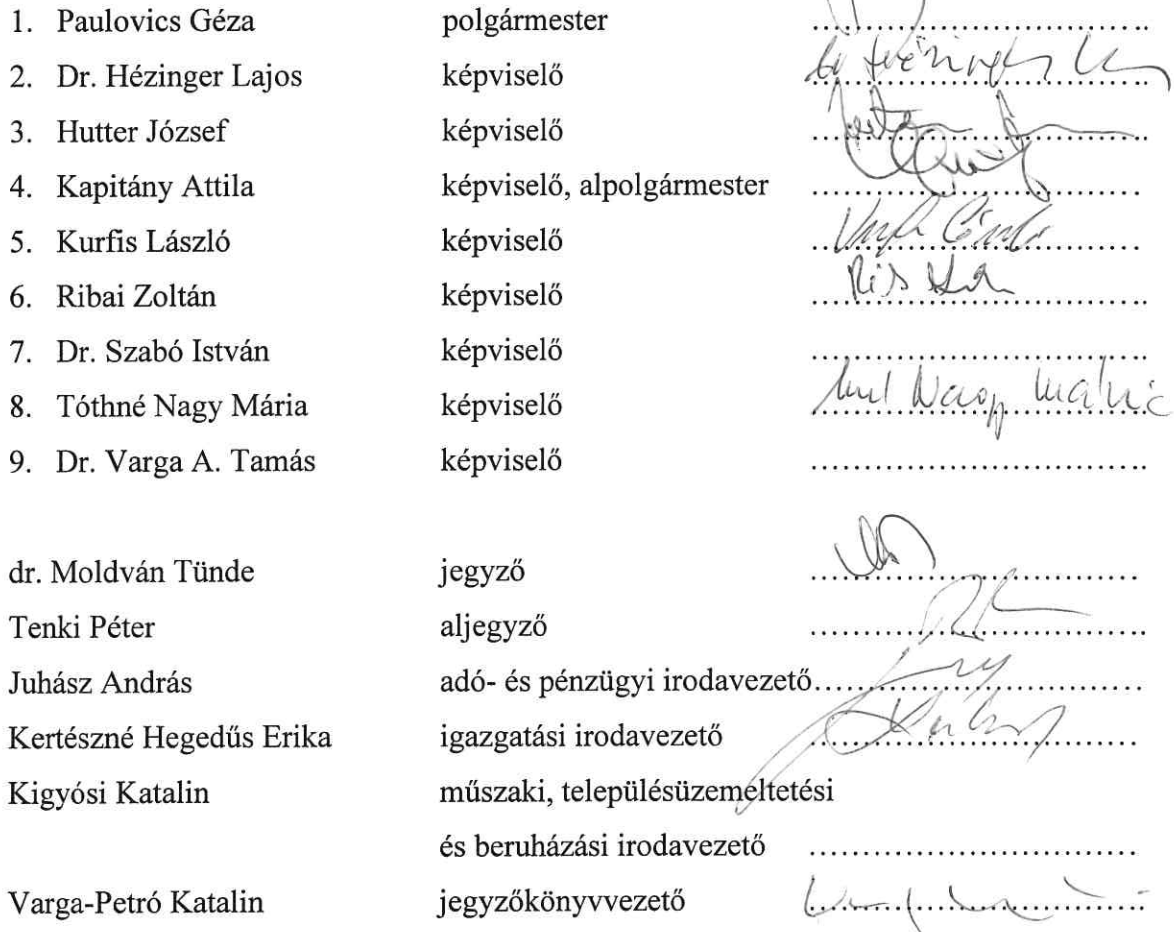 1. Paulovics Géza polgármester ........................................
2. Dr. Hézinger Lajos képviselő ........................................
3. Hutter József képviselő ........................................
4. Kapitány Attila képviselő, alpolgármester ........................................
5. Kurfis László képviselő ........................................
6. Ribai Zoltán képviselő ........................................
7. Dr. Szabó István képviselő ........................................
8. Tóthné Nagy Mária képviselő ........................................
9. Dr. Varga A. Tamás képviselő ........................................
dr. Moldván Tünde jegyző ........................................
Tenki Péter aljegyző ........................................
Juhász András adó- és pénzügyi irodavezető........................................
Kertészné Hegedűs Erika igazgatási irodavezető ........................................
Kigyósi Katalin műszaki, településüzemeltetési
és beruházási irodavezető ........................................
Varga-Petró Katalin jegyzőkönyvvezető ........................................